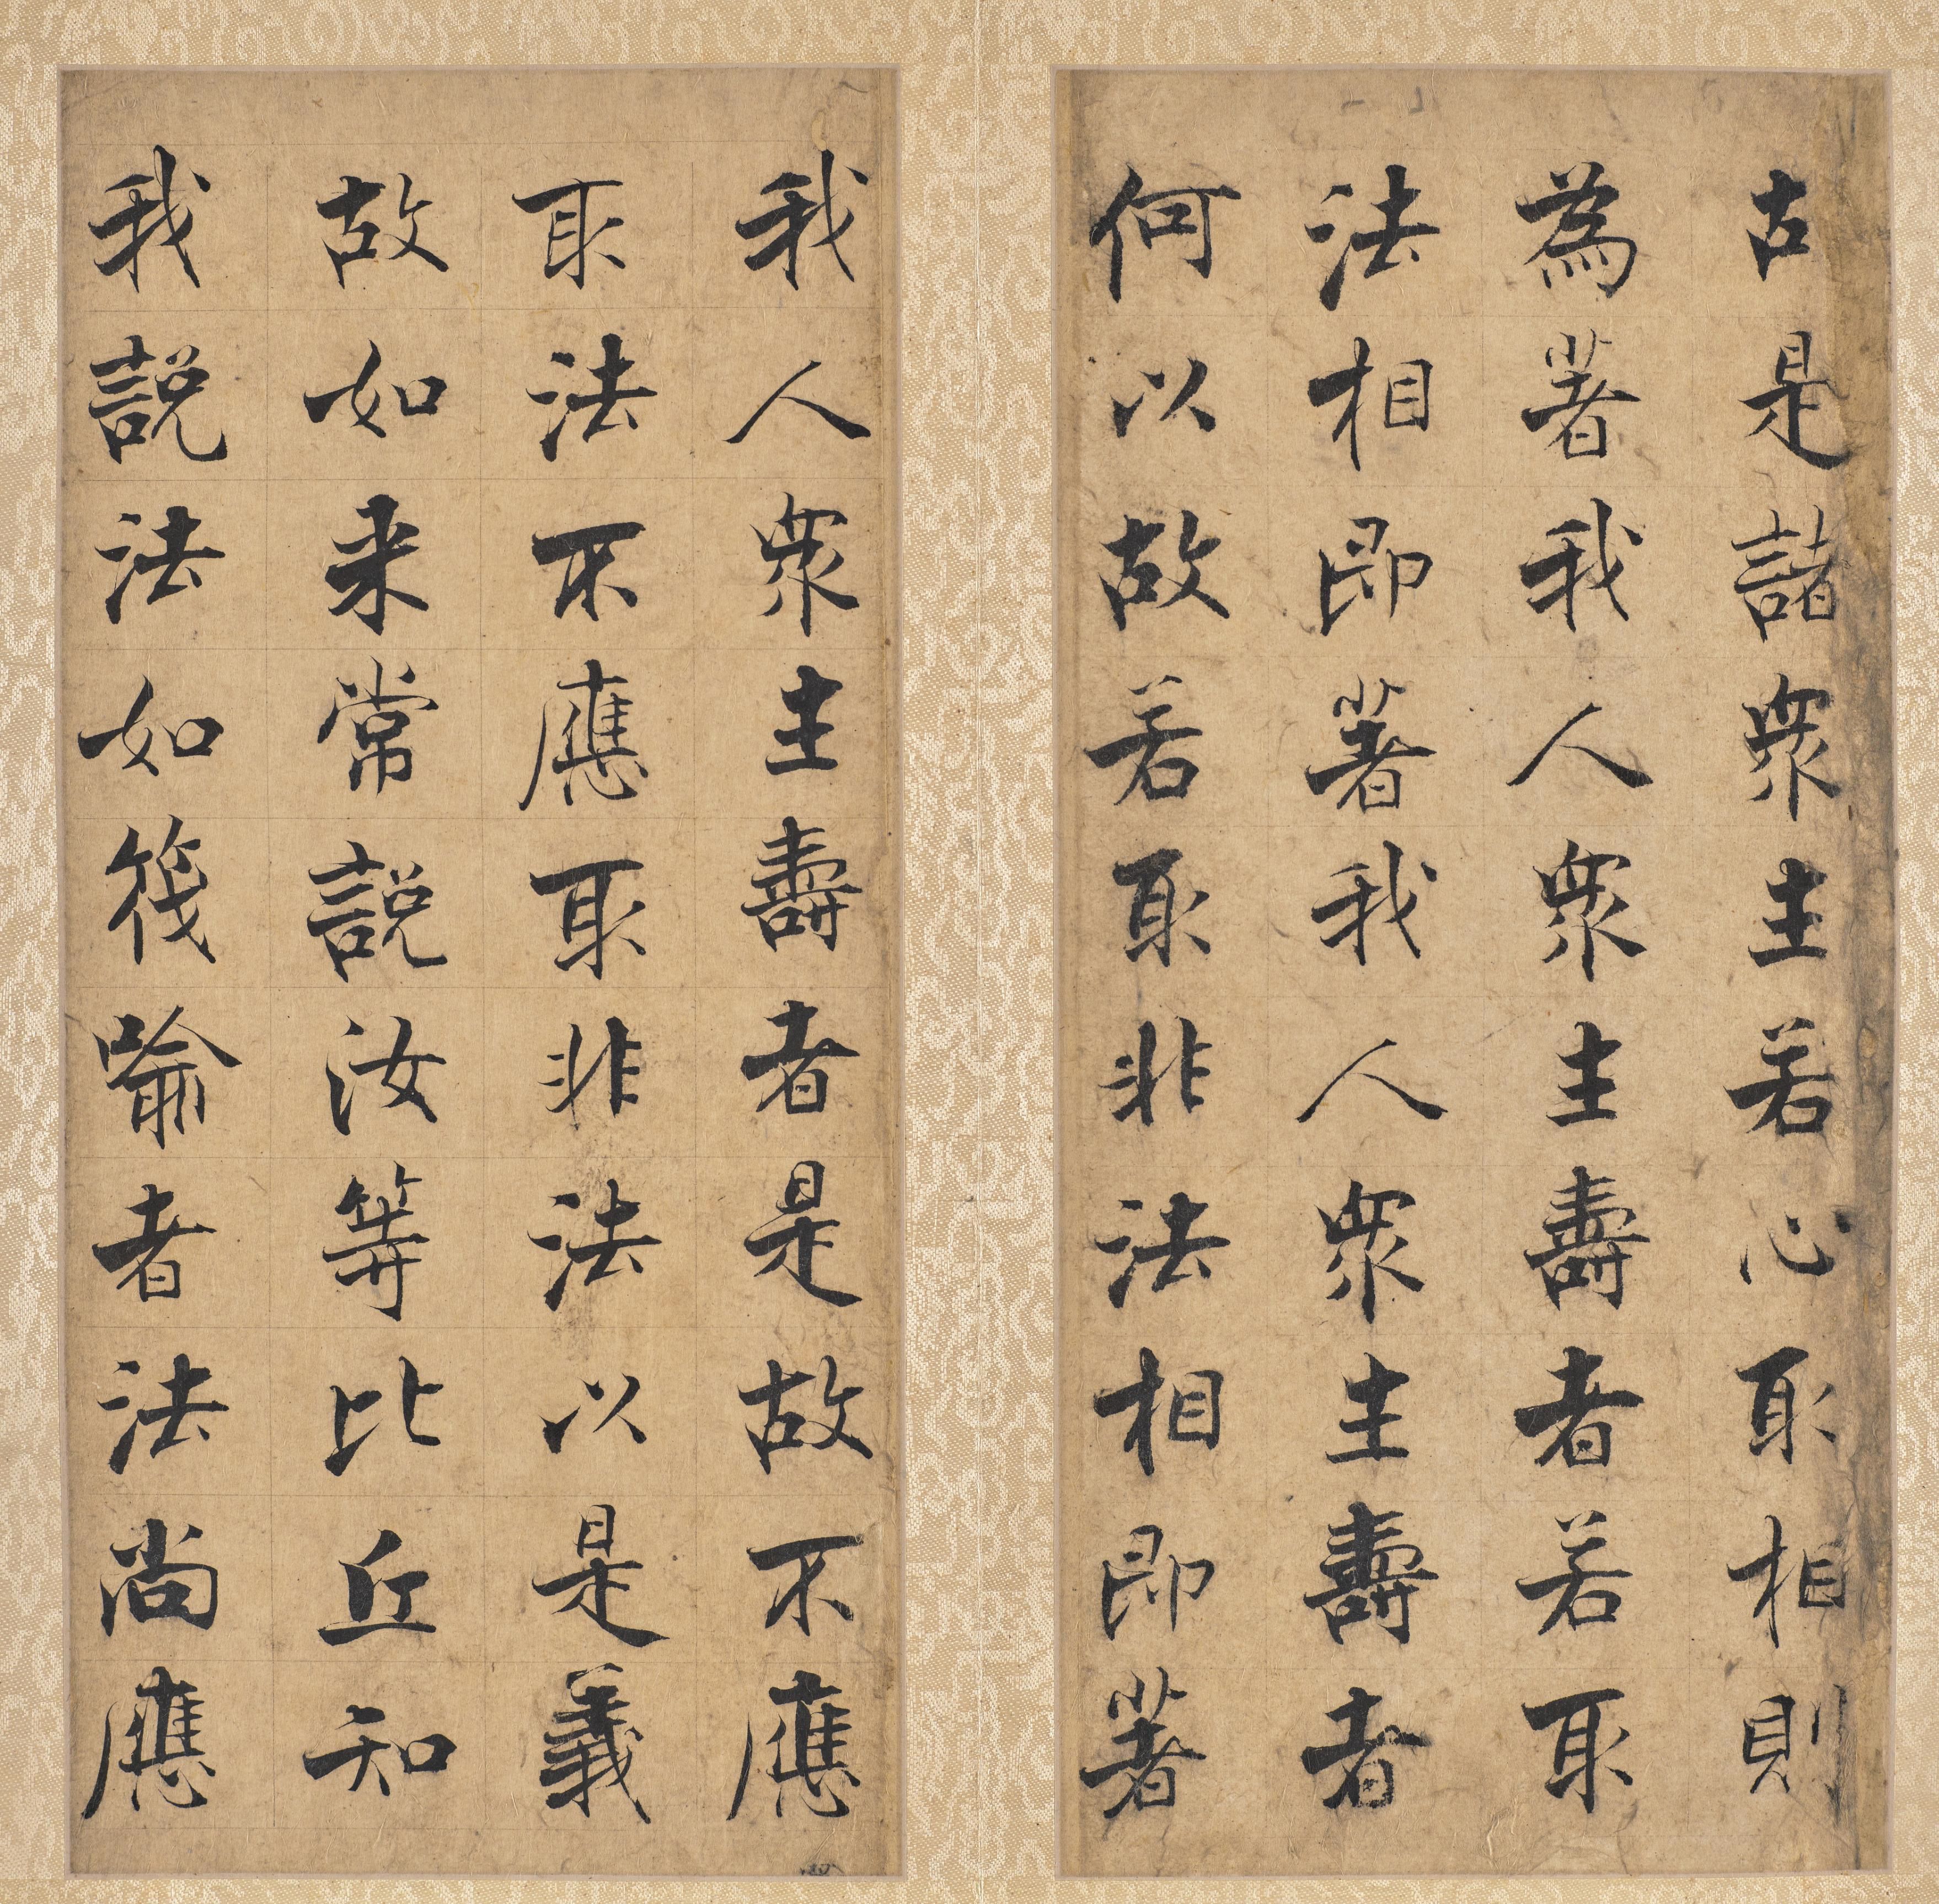 故是諸衆生若心取相則
為著我人衆生壽者若取
法相即著我人衆生壽者
何以故若取非法相即著
我人衆生壽者是故不應
取法不應取非法以是義
故如来常説汝等比丘知
我説法如筏喻者法尚應